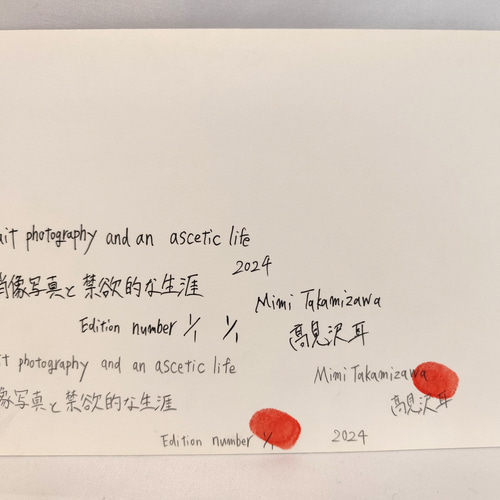 ait photography and an ascetic life
2024
肖像写真と禁欲的な生涯
Mimi Takamizawa
Edition number 1/1 1/1
高見沢耳
it photography and an ascetic life
Mimi Takamizawa
像写真と禁欲的な生涯
高見沢耳
Edition number 1/1
2024